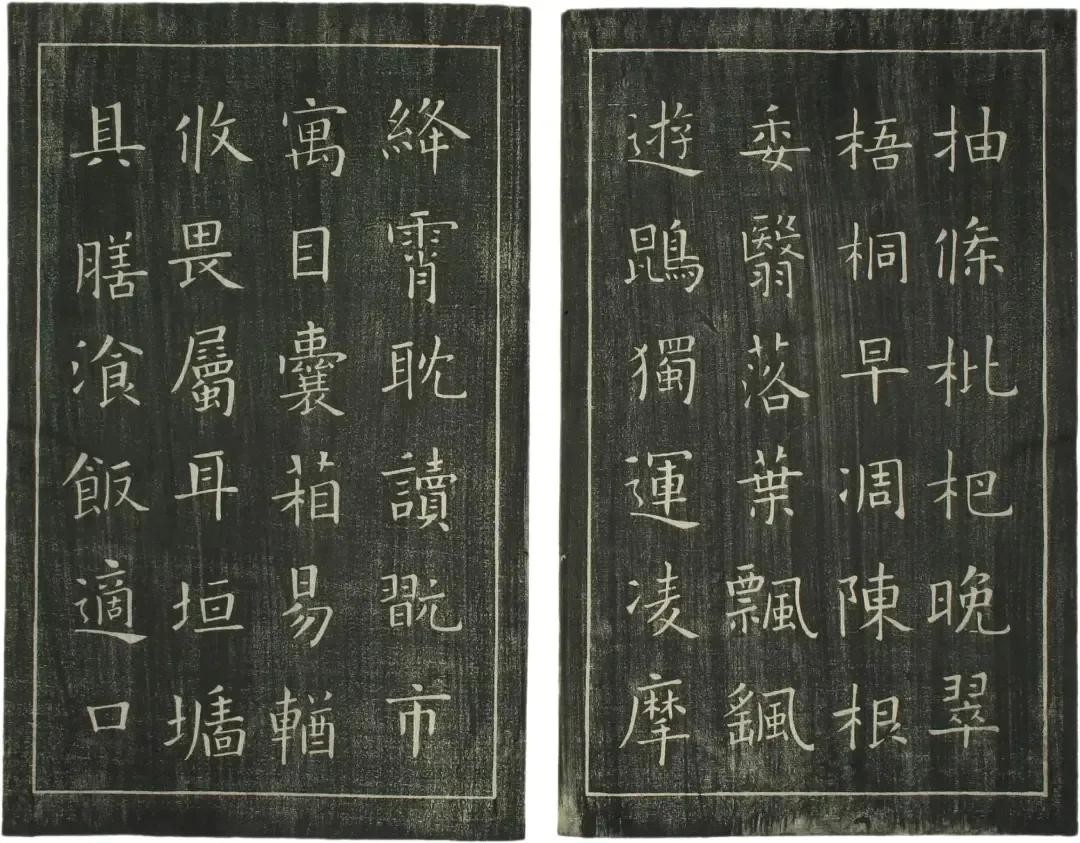 抽條枇杷晚翠
梧桐早凋陳根
委翳落葉飄颻
遊鵾獨運凌摩
絳霄耽讀翫市
寓目囊葙易輶
攸畏屬耳垣墻
具膳湌飯適口